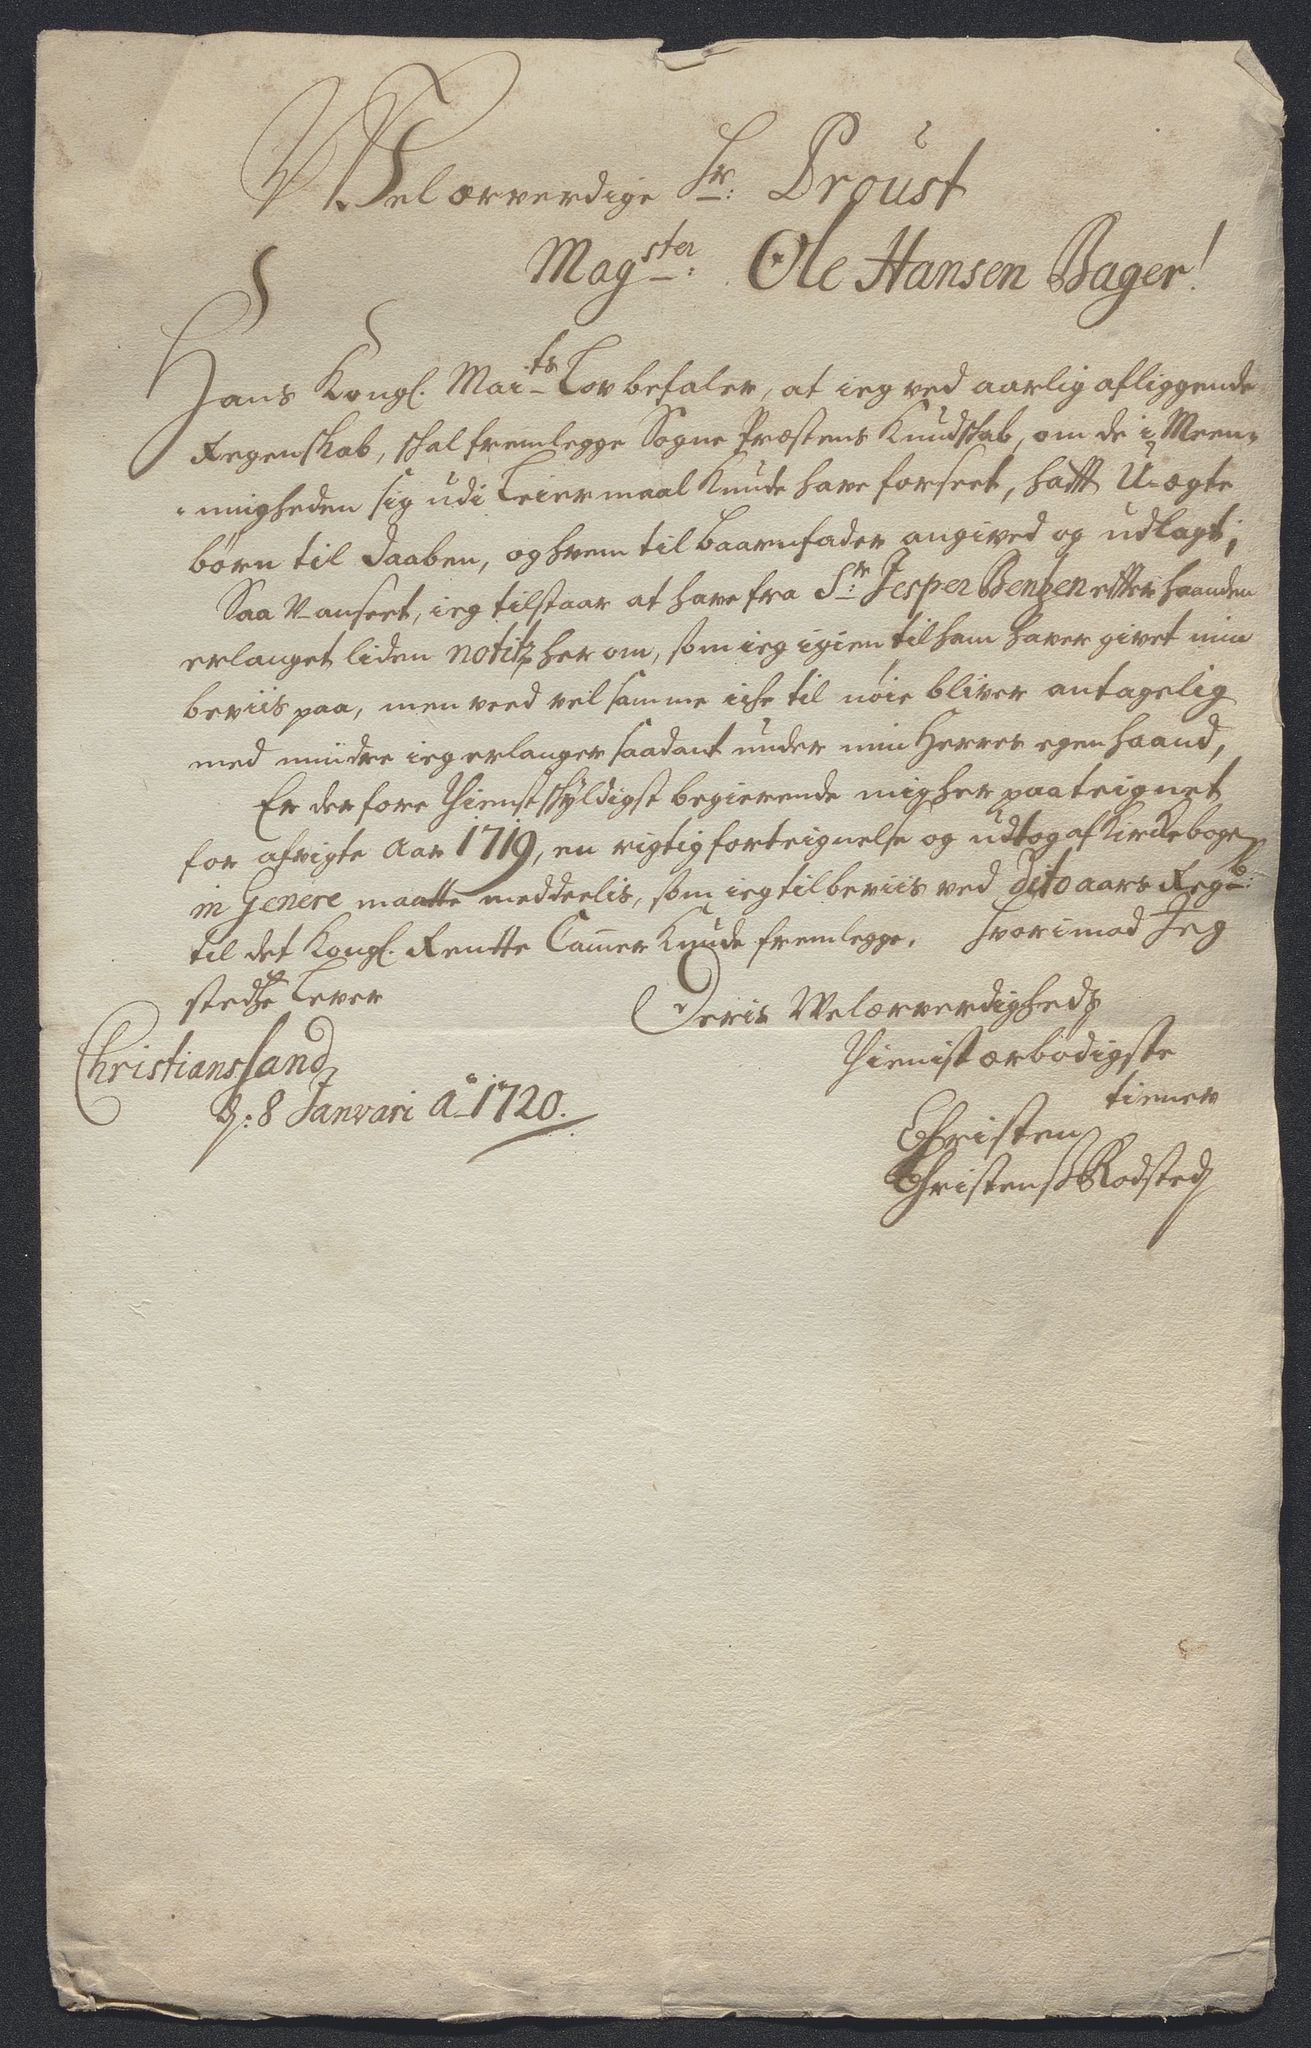 Velærverdige Hr: Proust
Mag^ster: Ole Hansen Bager!
Hans Kongl. Mai^ts Lov befaler, at ieg ved aarlig afliggende
Regenskab, skal fremlegge Sogne Præstens Kundskab, om de i Meen-
-nigheden sig udi Leiermaal Kunde have forseet, hafft U-ægte
børn til Daaben, og hvem til baarnfader angived og udlagt;
Saa V-anseet, ieg tilstaar at have fra S^r: Jesper Bentzen effter haanden
erlanget liden notitz her om, som ieg igien til ham haver givet min
beviis paa, men veed vel samme iche til nøie bliver antagelig
med mindre ieg erlanger saadant under min Herres egen haand,
Er derfore tienstskyldigst begierende mig her paateignet
for afvigte Aar 1719, en rigtig forteignelse og udtog af Kirckebogen
in Genere maatte meddeelis, som ieg til beviis ved Dito aars Regn^b:
til det Kongl. Rentte Cammer Kunde fremlegge. Hvorimod Jeg
stedtze Lever
Deris Velærverdigheds
Tienist ærbødigste
tiener
Christianssand
d: 8 Januari A^o 1720.
Christen
Christens Rodsted